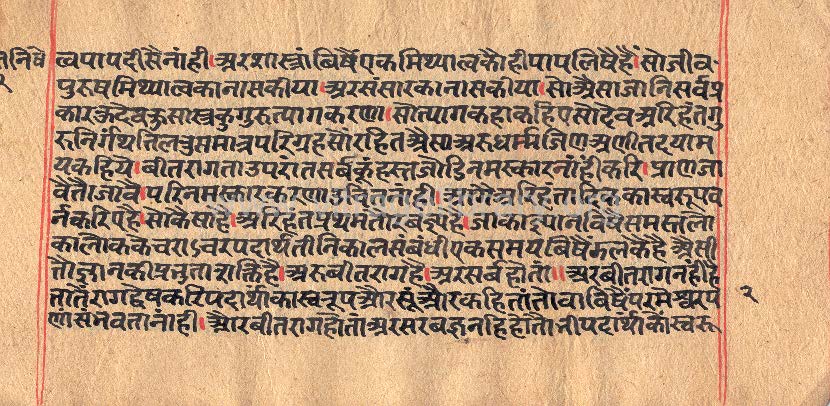 त्व पाप दीसै नांही। अर शास्त्रां बिषैं एक मिथ्यात्व कौ ही पाप लिषै है। सो जीव-
पुरुष मिथ्यात्व का नास कीया। अर संसार का नास कीया। सो अैसा जानि सर्व प्र
कार कुदेव कुसास्त्र कुगुरु त्याग करणा। सो त्याग कहा कहिए सो देव अरिहंत गु
रु निर्ग्रंथ तिल तुस मात्र परिग्रह सौं रहित अैसा अरु धर्म जिण प्रणीत दया म
य कहिये। बीतरागता उपरांत सर्व कूं हस्त जोडि नमस्कार नांहीं करि। प्राण जा
वै तौ जावै। परि नमस्कार करणा उचित नांही।
र्न करिए है। सो कैसा है। अरिहंत प्रथम तौ सर्वज्ञ है। जा का ग्यान विषै समस्त लो
कालोक के चराऽचर पदार्थ तीनि काल संबंधी एक समय बिषै झलकै है अैसी
तौ ज्ञान की प्रभुता शक्ति है। अरु बीतराग है। अर सर्वज्ञ होता॥ अर बीतराग नही है
तातैं राग द्वेष करि पदार्थां का स्वरूप और सूं और कहितां तो वा बिषै परमेश्वर प
णां संभवता नांही। और बीतराग होता अर सरबज्ञ नहि होतौ भी पदार्थां कौ स्वरू
२